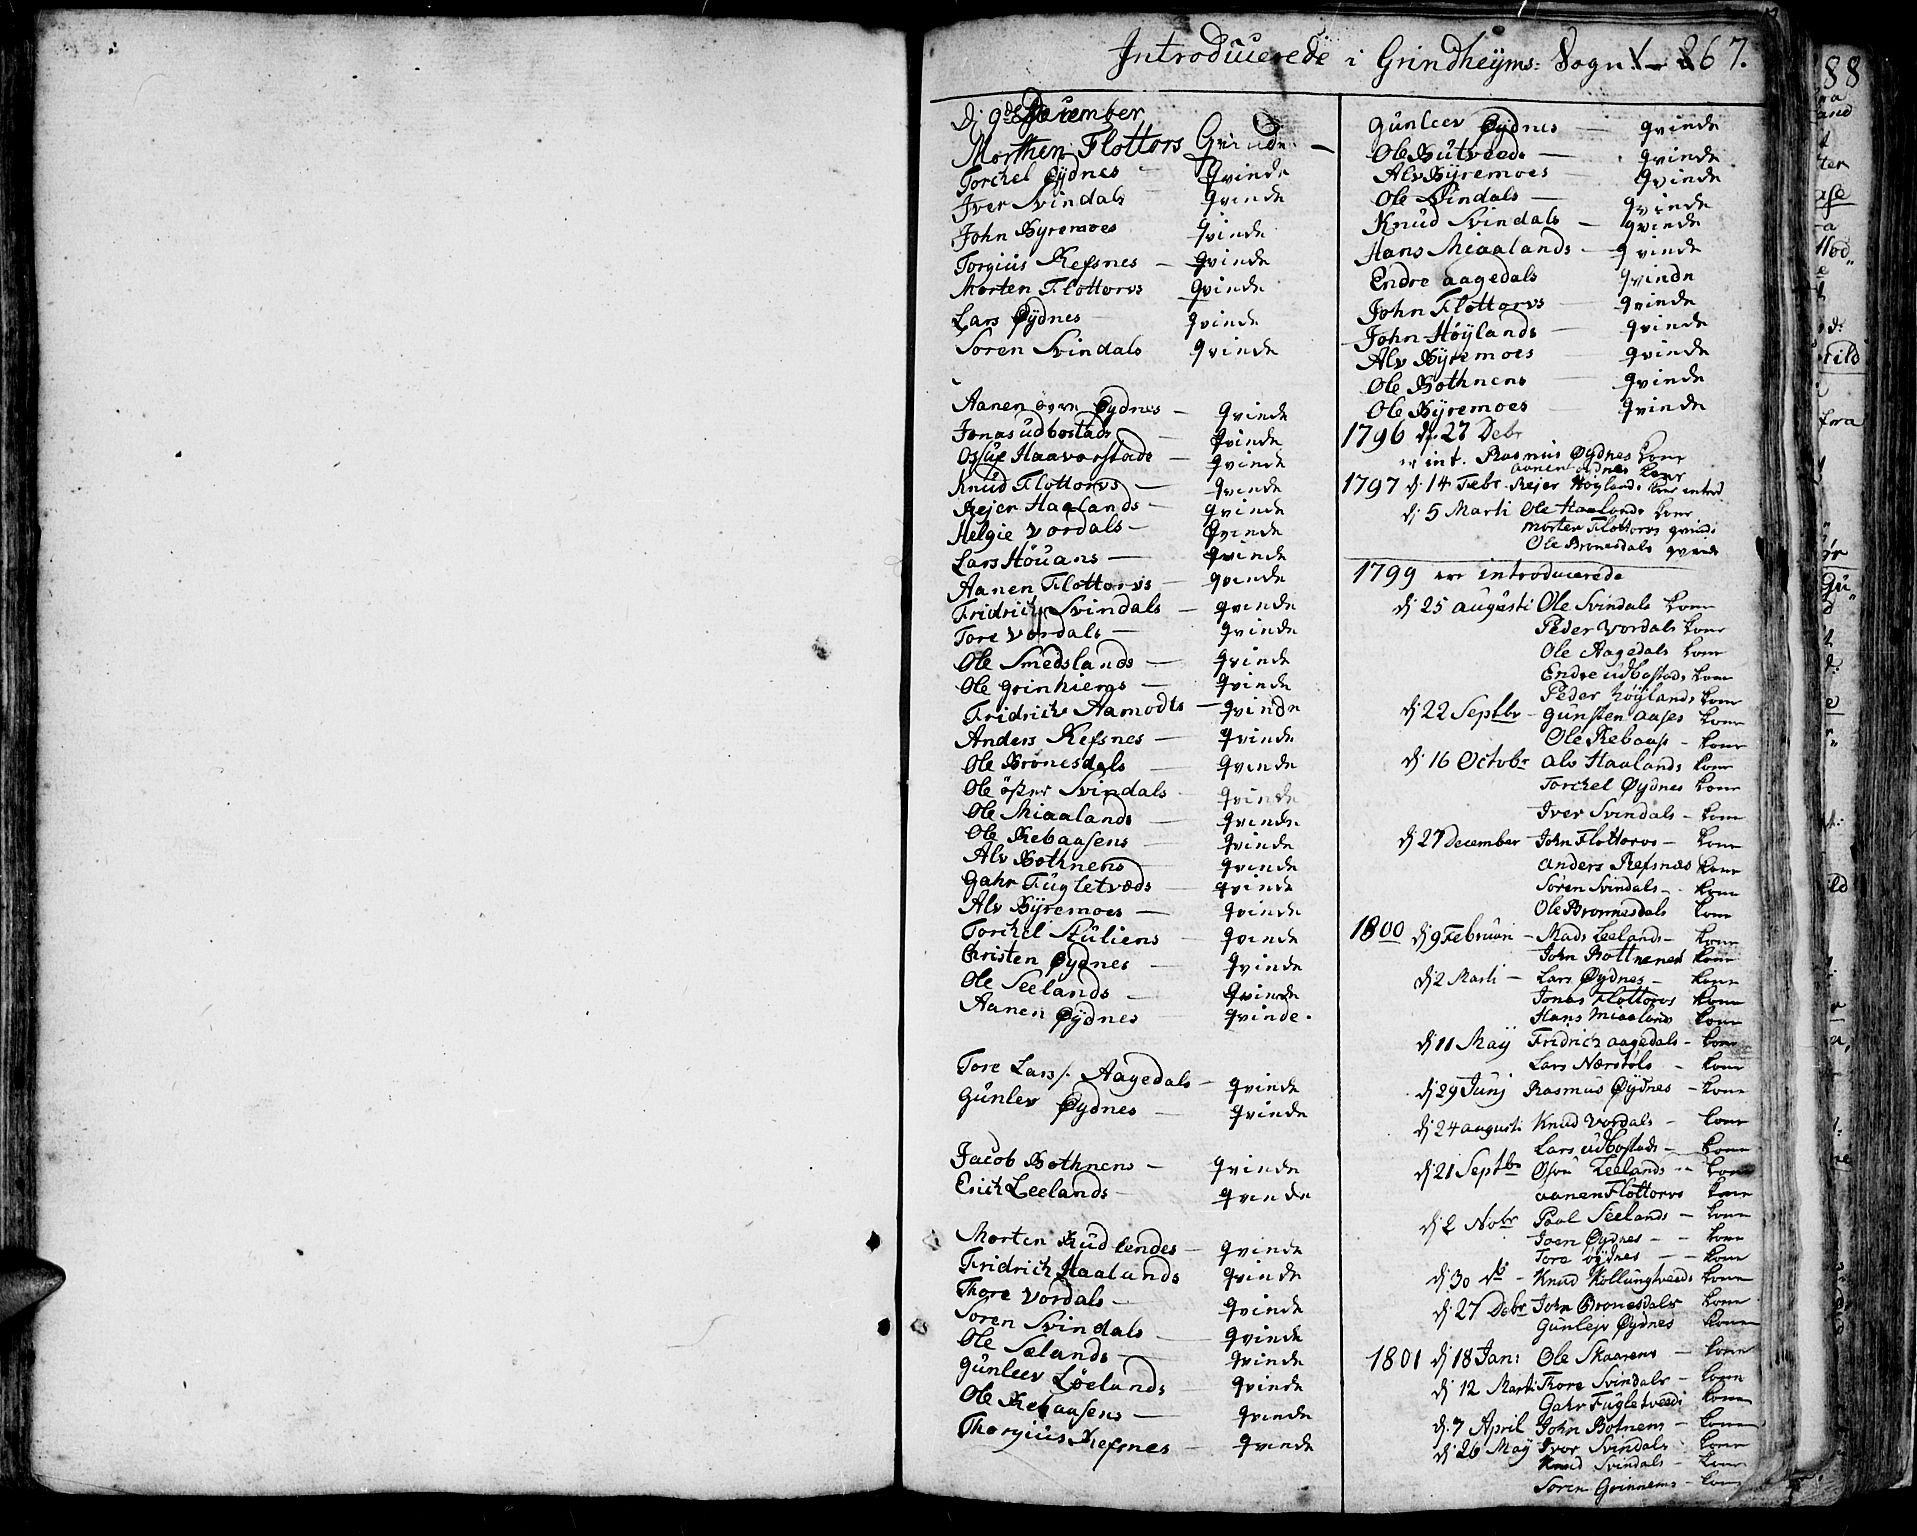 Introduceerede i Grindheÿms: Sogn 267.
dj 9de December
Morthen Flottors Qvinde
Torckel Øydnes qvinde
Iver Svindals qvinde
John Byremoes qvinde
Torgius Refsnes qvinde
Morten Flottorvs qvinde
Lars Øydnes qvinde
Soren Svindals qvinde
Aanen Øydnes qvinde
Jonas udbostads qvinde
Osul Haavorstads qvinde
Knud Flottorvs qvinde
Rejer Haalands qvinde
Helgie Vordals qvinde
Lars Høuans qvinde
Aanen Flottorvs qvinde
Fridrich Svindals qvinde
Tore Vordals qvinde
Ole Smedslands qvinde
Ole Grinhiergs qvinde
Fridrich Aamodts qvinde
Anders Refsnes qvinde
Ole Bronesdals qvinde
Ole öster Svindals qvinde
Ole Miaalands qvinde
Ole Rebaasens qvinde
Alv Bothnens qvinde
Gahr Fugletvæds qvinde
Alv Byremoes qvinde
Torckel Stuliens qvinde
Christen Øydnes qvinde
Ole Seelands qvinde
Aanen Øydnes qvinde.
Tore Lars/: Aagedals qvinde
Gunlev Øydnes qvinde
Jacob Bothnens qvinde
Erich Leelands qvinde
Morten Rudlendes qvinde
Fridrich Haalands qvinde
Thore Vordals qvinde
Soren Svindals qvinde
Ole Sælands qvinde
Gunleev Løelands qvinde
Ole Rebaasens qvinde
Thorgius Refsnes qvinde
Gunleev Øydnes qvinde
Ole Butveds qvinde
Alv Byremoes qvinde
Ole Svindals qvinde
Knud Svindals qvinde
Hans Miaalands qvinde
Endre Aagedals qvinde
John Flottorvs qvinde
John Høylands qvinde
Alv Byremoes qvinde
Ole Bothnens qvinde
Ole Byremoes qvinde
1796 dj 27 Debr
er int. Rasmus Øydnes kone
aanen oydnes kone
1797 dj 14 Febr Rejer Høylands kone introd
dj 5 Marti Ole Haalands kone
morten Flottorvs qvinde
Ole Bronesdals qvinde
1799 ere introducerede
dj 25 augusti Ole Svindals kone
Peder Vordals kone
Ole Aagedals kone
Endre udbostads kone
Peder høylands kone
dj 22 Septbr Gunsten aases kone
Ole Rebaas kone
dj 16 Octobr alv Haalands kone
Torckel Øydnes kone
Iver Svindals kone
dj 27 December John Flottorvs kone
anders Refsnes kone
Søren Svindals kone
Ole Bronnesdals kone
1800 dj 9 Februari Mads Leelands kone
John Bottnenes kone
dj 2 Marti Lars Øydnes kone
Jonas Flottorvs kone
Hans Miaalands kone
dj 11 Maÿ Fridrich aagedals kone
Lars Nærstøls kone
dj 29 Junj Rasmus Øydnes kone
dj 24 augusti Knud Vordals kone
Lars udbostads kone
dj 21 Septbr Leelands kone
aanen Flottorvs kone
dj 2 Nobr Paul Seelands kone
Joen Øydnes kone
Tore øydnes kone
dj 30 do Knud Kollungtvedts kone
dj 27 Debr John Bronesdals kone
Gunlev Øydnes kone
1801 dj 18 Jan: Ole Skaarens kone
dj 12 Marti Thore Svindals kone
Gahr Fugletveds kone
dj 7 April John Botnens kone
dj 26 Maÿ Ivor Svindals kone
Knud Svindals kone
Soren Grinnems kone
88